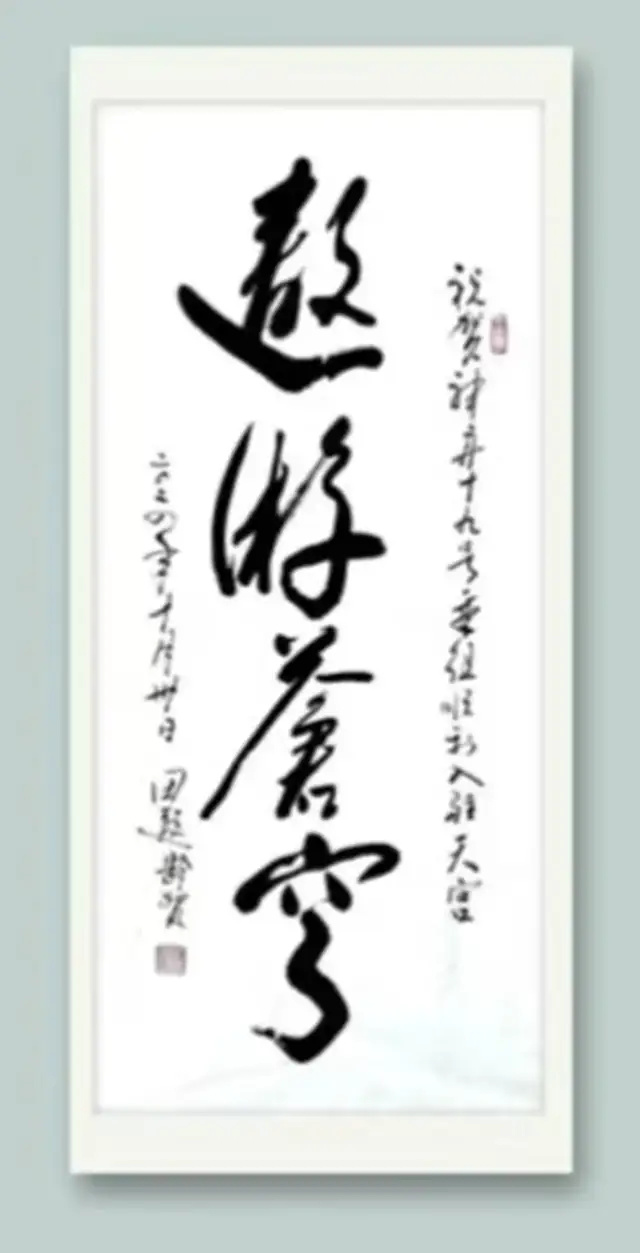 祝贺神舟十九号乘组顺利入驻天宫
遨游蒼穹
二〇二四年十月卅日
田 龄贺